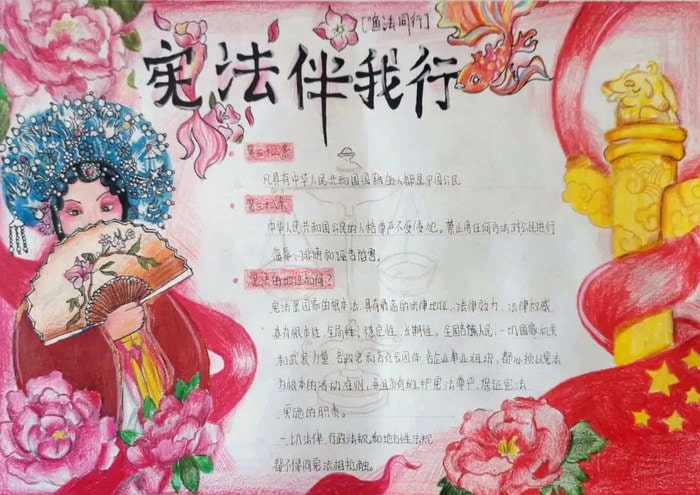 法同行]
宪法伴我行
凡具有中华人民共和国国籍的人都是中国公民
中华人民共和国公民的人格尊严不受侵犯。禁止用任何方法对公民进行
侮辱、诽谤和诬告陷害。
宪法的地位如何？
宪法是国家的根本法，具有最高的法律地位、法律效力、法律权威
具有根本性、全局性、稳定性、长期性。全国各族人民，一切国家机关
和武装力量 各政党和各社会团体 各企业事业组织，都必须以宪法
为根本的活动准则，并且负有维护宪法尊严、保证宪法
实施的职责。
一切法律、行政法规和地方性法规
都不得同宪法相抵触。